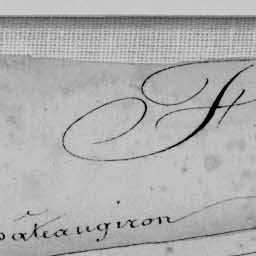 F
hateaugiron